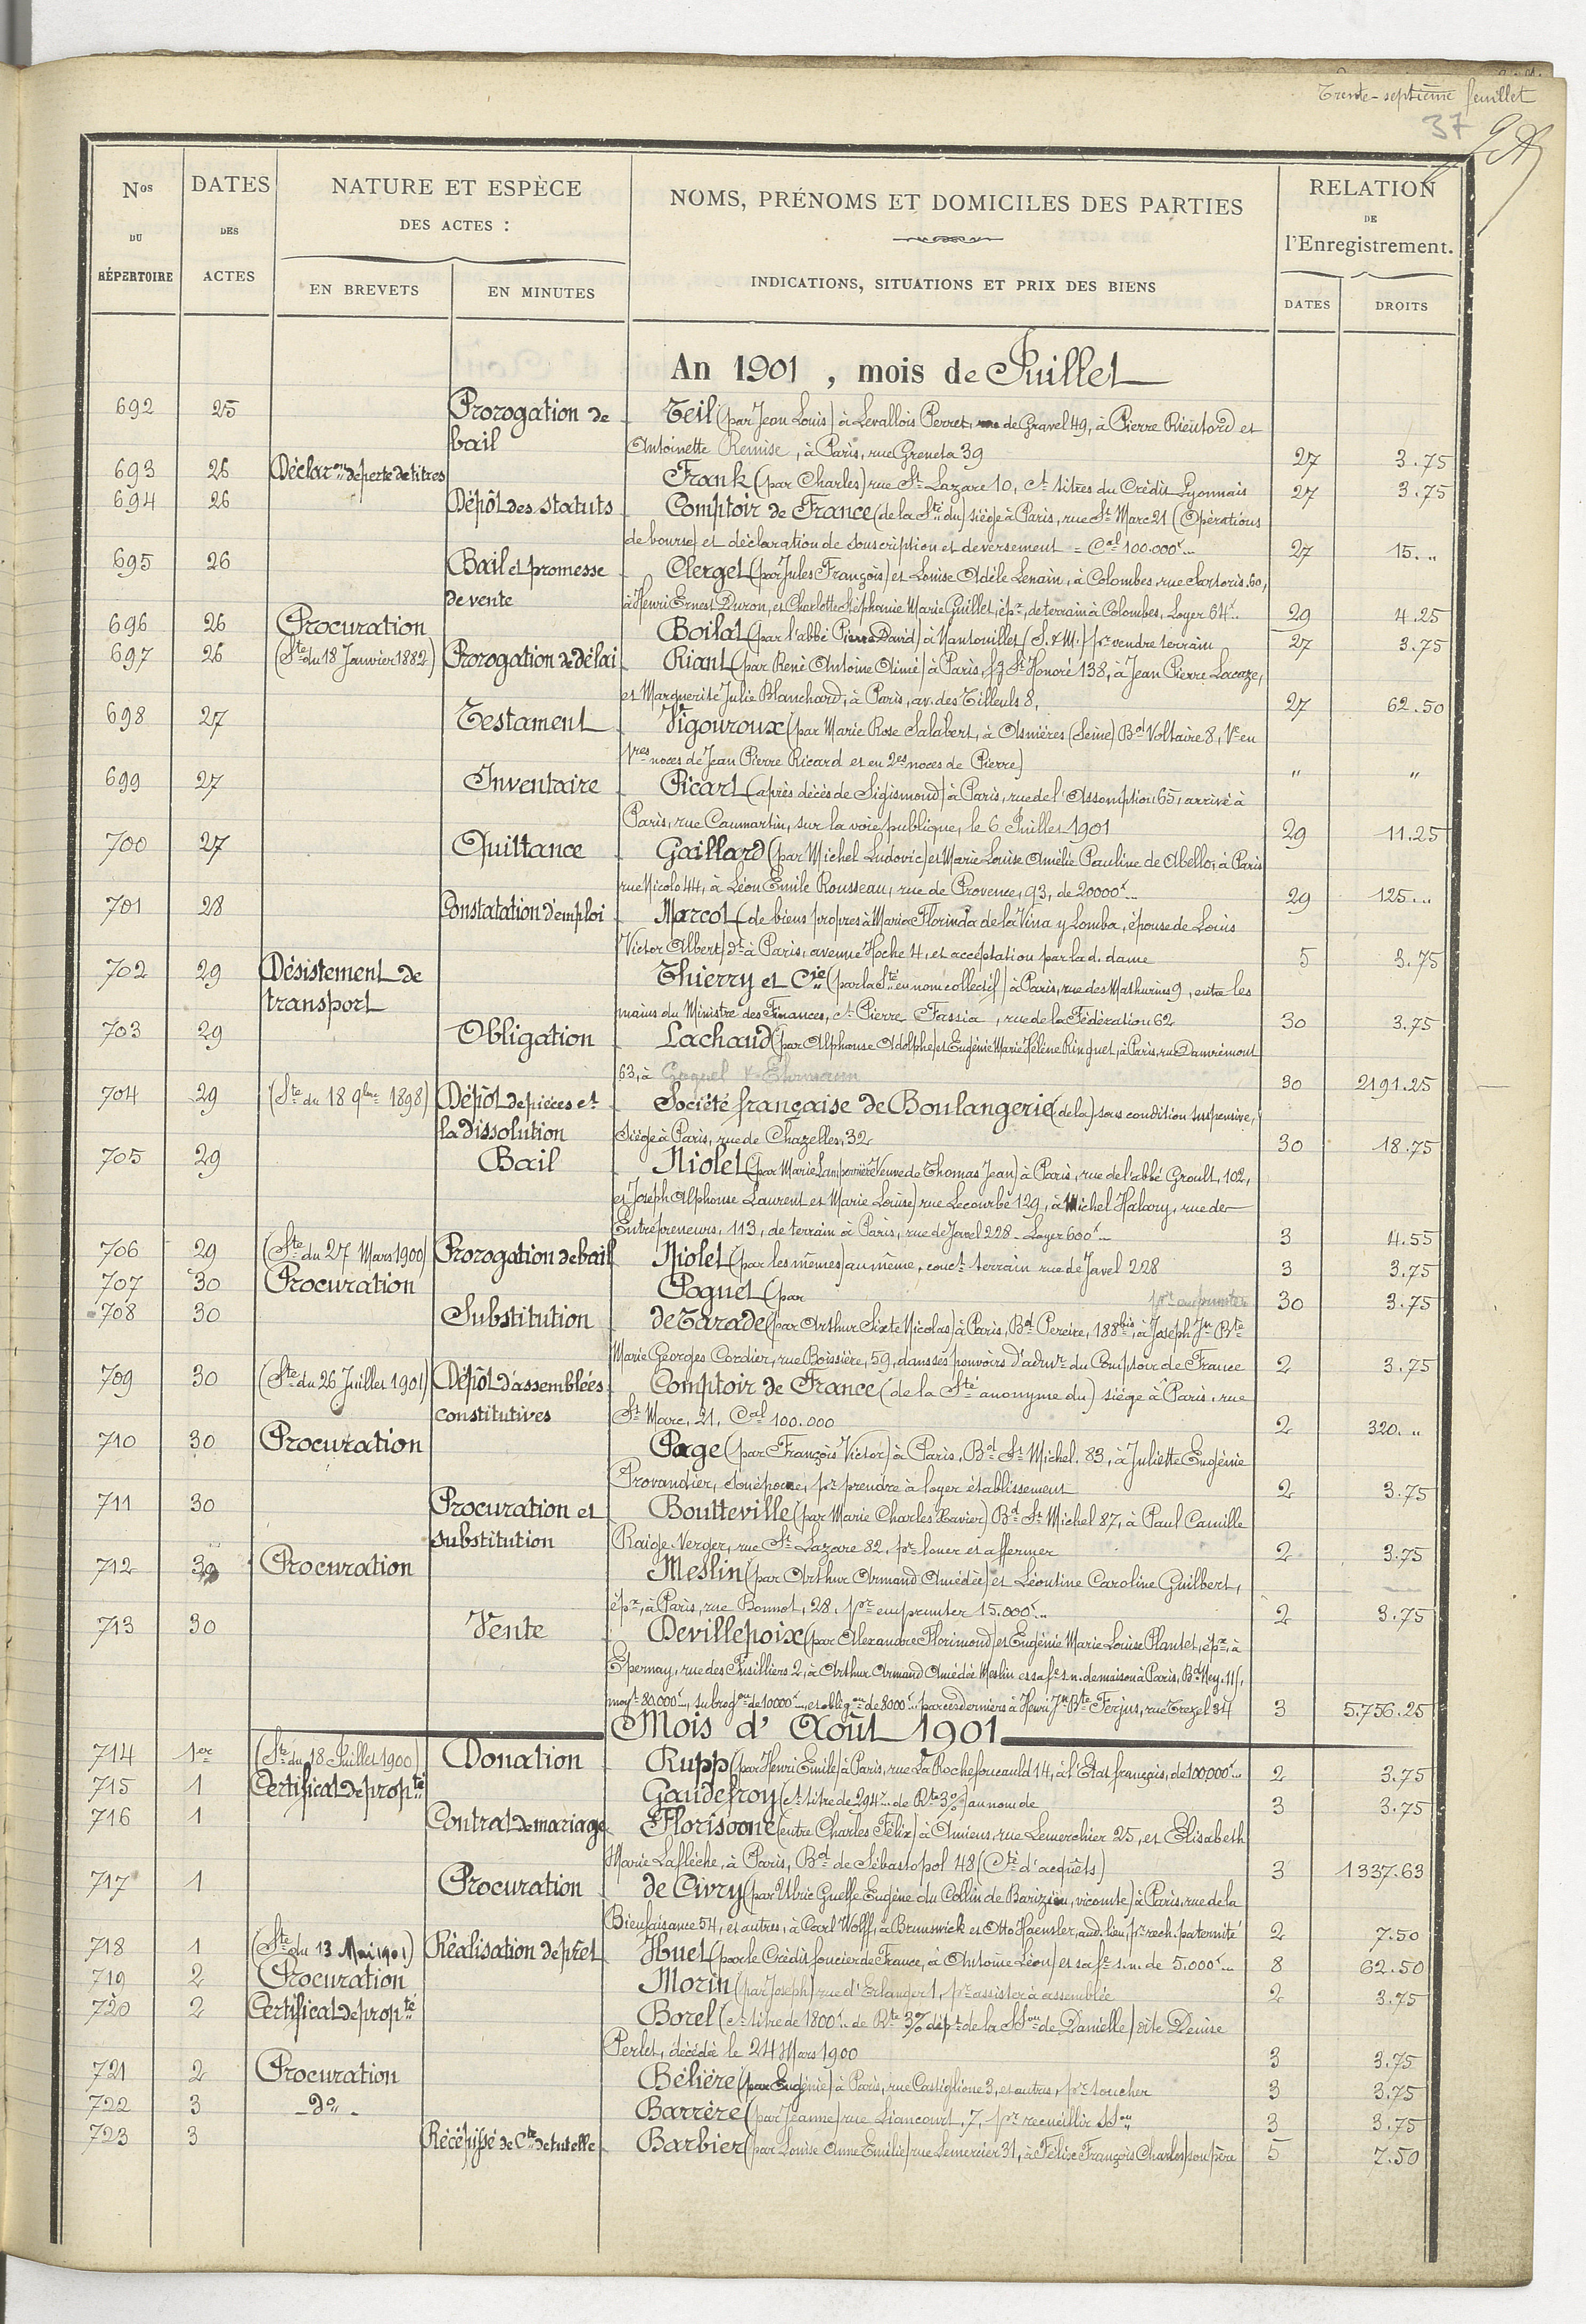 Trente-septième feuillet
37
Nos DU RÉPERTOIRE
DATES DES ACTES
NATURE ET ESPÈCE DES ACTES :
EN BREVETS
EN MINUTES
NOMS, PRÉNOMS ET DOMICILES DES PARTIES
INDICATIONS, SITUATIONS ET PRIX DES BIENS
RELATION DE l'Enregistrement.
DATES
DROITS
An 1901, mois de Juillet
692 25 Prorogation de Teil (par Jean Louis) à Levallois Perret, rue de Gravel 49, à Pierre Rieutord et
bail Antoinette Remise, à Paris, rue Greneta 39 27 3.75
693 26 Déclaron de perte de titres Frank (par Charles) rue St Lazare 10, ct titres du Crédit Lyonnais 27 3.75
694 26 Dépôt des statuts Comptoir de France (de la Sté du) siège à Paris, rue St Marc 21 (Opérations
de bourse) et déclaration de souscription et de versement = Cal 100.000f.. 27 15. "
695 26 Bail et promesse Clerget (par Jules François) et Louise Adèle Lenain, à Colombes, rue Sartoris 60,
de vente à Henri Ernest Duron, et Charlotte Stéphanie Marie Guillet, épx, de terrain à Colombes, Loyer 64f.. 29 4.25
696 26 Procuration Boilat (par l'abbé Pierre David) à Nantouillet (S. & M.) pr vendre terrain 27 3.75
697 26 (Ste du 18 Janvier 1882) Prorogation de délai Riant (par René Antoine Aimé) à Paris, fg St Honoré 138, à Jean Pierre Lacaze,
et Marguerite Julie Blanchard, à Paris, av. des Tilleuls 8, 27 62.50
698 27 Testament Vigouroux (par Marie Rose Salabert, à Asnières (Seine) Bd Voltaire 8, Ve en
1res noces de Jean Pierre Ricard et en 2es noces de Pierre) " "
699 27 Inventaire Picart (après décès de Sigismond) à Paris, rue de l'Assomption 65, arrivé à
Paris, rue Caumartin, sur la voie publique, le 6 Juillet 1901 29 11.25
700 27 Quittance Gaillard (par Michel Ludovic) et Marie Louise Amélie Pauline de Abello, à Paris
rue Nicolo 44, à Léon Emile Rousseau, rue de Provence, 93, de 20000f.. 29 125. "
701 28 Constatation d'emploi Marcot (de biens propres à Maria Florinda de la Vina y Lomba, épouse de Louis
Victor Albert) dt à Paris, avenue Hoche 4, et acceptation par la d. dame 5 3.75
702 29 Désistement de Thierry et Cie (par la Sté en nom collectif) à Paris, rue des Mathurins 9, entre les
transport mains du Ministre des Finances, ct Pierre Fassia, rue de la Fédération 62 30 3.75
703 29 Obligation Lachaud (par Alphonse Adolphe) et Eugénie Marie Hélène Ringuet, à Paris, rue Damrémont
63, à Goguel & Ehrmann 30 2191.25
704 29 (Ste du 18 9bre 1898) Dépôt de pièces ct Société française de Boulangerie (de la) sous condition suspensive,
la dissolution Siège à Paris, rue de Chazelles, 32 30 18.75
705 29 Bail Niolet (par Marie Lamperrière Veuve de Thomas Jean) à Paris, rue de l'abbé Groult, 102,
et Joseph Alphonse Laurent et Marie Louise) rue Lecourbe 129, à Michel Halary, rue des
Entrepreneurs, 113, de terrain à Paris, rue de Javel 228 - Loyer 600f.. 3 4.55
706 29 (Ste du 27 Mars 1900) Prorogation de bail Niolet (par les mêmes) au même, conct terrain rue de Javel 228 3 3.75
707 30 Procuration Poguet (par pr emprunter 30 3.75
708 30 Substitution de Tarade (par Arthur Sixte Nicolas) à Paris, Bd Pereire, 188bis, à Joseph Jn Bte
Marie Georges Cordier, rue Boissière, 59, dans ses pouvoirs d'admr du Comptoir de France 2 3.75
709 30 (Ste du 26 Juillet 1901) Dépôt d'assemblées Comptoir de France (de la Sté anonyme du) siège à Paris, rue
constitutives St Marc, 21, Cal 100.000 2 320. "
710 30 Procuration Page (par François Victor) à Paris, Bd St Michel. 83, à Juliette Eugénie
Provandier, son épouse, pr prendre à loyer établissement 2 3.75
711 30 Procuration et Boutteville (par Marie Charles Xavier) Bd St Michel 87, à Paul Camille
substitution Raige-Verger, rue St Lazare 82, pr louer et affermer 2 3.75
712 30 Procuration Meslin (par Arthur Armand Amédée) et Léontine Caroline Guilbert,
épx, à Paris, rue Bonnot, 28, pr emprunter 15.000f.. 2 3.75
713 30 Vente Devillepoix (par Alexandre Florimond) et Eugénie Marie Louise Plantet, épx, à
Epernay, rue des Fusilliers 2, à Arthur Armand Amédée Meslin et sa fe s.n. de maison à Paris, Bd Ney. 11,
moyt 80.000f.., subrogon de 10000f.., et obligon de 8000f.. par ces derniers à Henri Jn Bte Ferjus, rue Trezel 34 3 5.756.25
Mois d'Août 1901
714 1er (Ste du 18 Juillet 1900) Donation Rupp (par Henri Emile) à Paris, rue La Rochefoucauld 14, à l'Etat français, de 100000f.. 2 3.75
715 1 Certificat de propté Gaudefroy (ct titre de 294f.. de Rte 3%) au nom de 3 3.75
716 1 Contrat de mariage Florisoone (entre Charles Félix) à Amiens, rue Lemerchier 25, et Elisabeth
Marie Laflèche, à Paris, Bd de Sébastopol 48 (Cté d'acquêts) 3 1337.63
717 1 Procuration de Civry (par Ulric Guelfe Eugène du Collin de Barizien, vicomte) à Paris, rue de la
Bienfaisance 54, et autres, à Carl Wolff, à Brunswick et Otto Haensler, aud. lieu, pr rech. paternité 2 7.50
718 1 (Ste du 13 Mai 1901) Réalisation de prêt Huet (par le Crédit foncier de France, à Antoine Léon) et sa fe s.n. de 5.000f.. 8 62.50
719 2 Procuration Morin (par Joseph) rue d'Erlanger 1, pr assister à assemblée 2 3.75
720 2 Certificat de propté Borel (ct titre de 1800f.. de Rte 3% dépt de la SSon de Danielle) dite Denise
Perlet, décédée le 24 Mars 1900 3 3.75
721 2 Procuration Bélière (par Eugénie) à Paris, rue Castiglione 3, et autres, pr toucher 3 3.75
722 3 - do - Barrère (par Jeanne) rue Liancourt, 7, pr recueillir SSon 3 3.75
723 3 Récépissé de Cte de tutelle Barbier (par Louise Anne Emilie) rue Lemercier 31, à Félix François Charles) son père 5 7.50